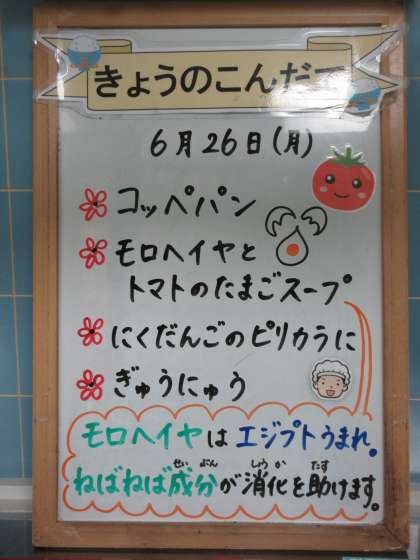 きょうのこんだて
6月26日(月)
コッペパン
モロヘイヤと
トマトのたまごスープ
にくだんごのピリカラに
ぎゅうにゅう
モロヘイヤはエジプトうまれ。
ねばねば成分が消化を助けます。
せいぶん しょうか たす